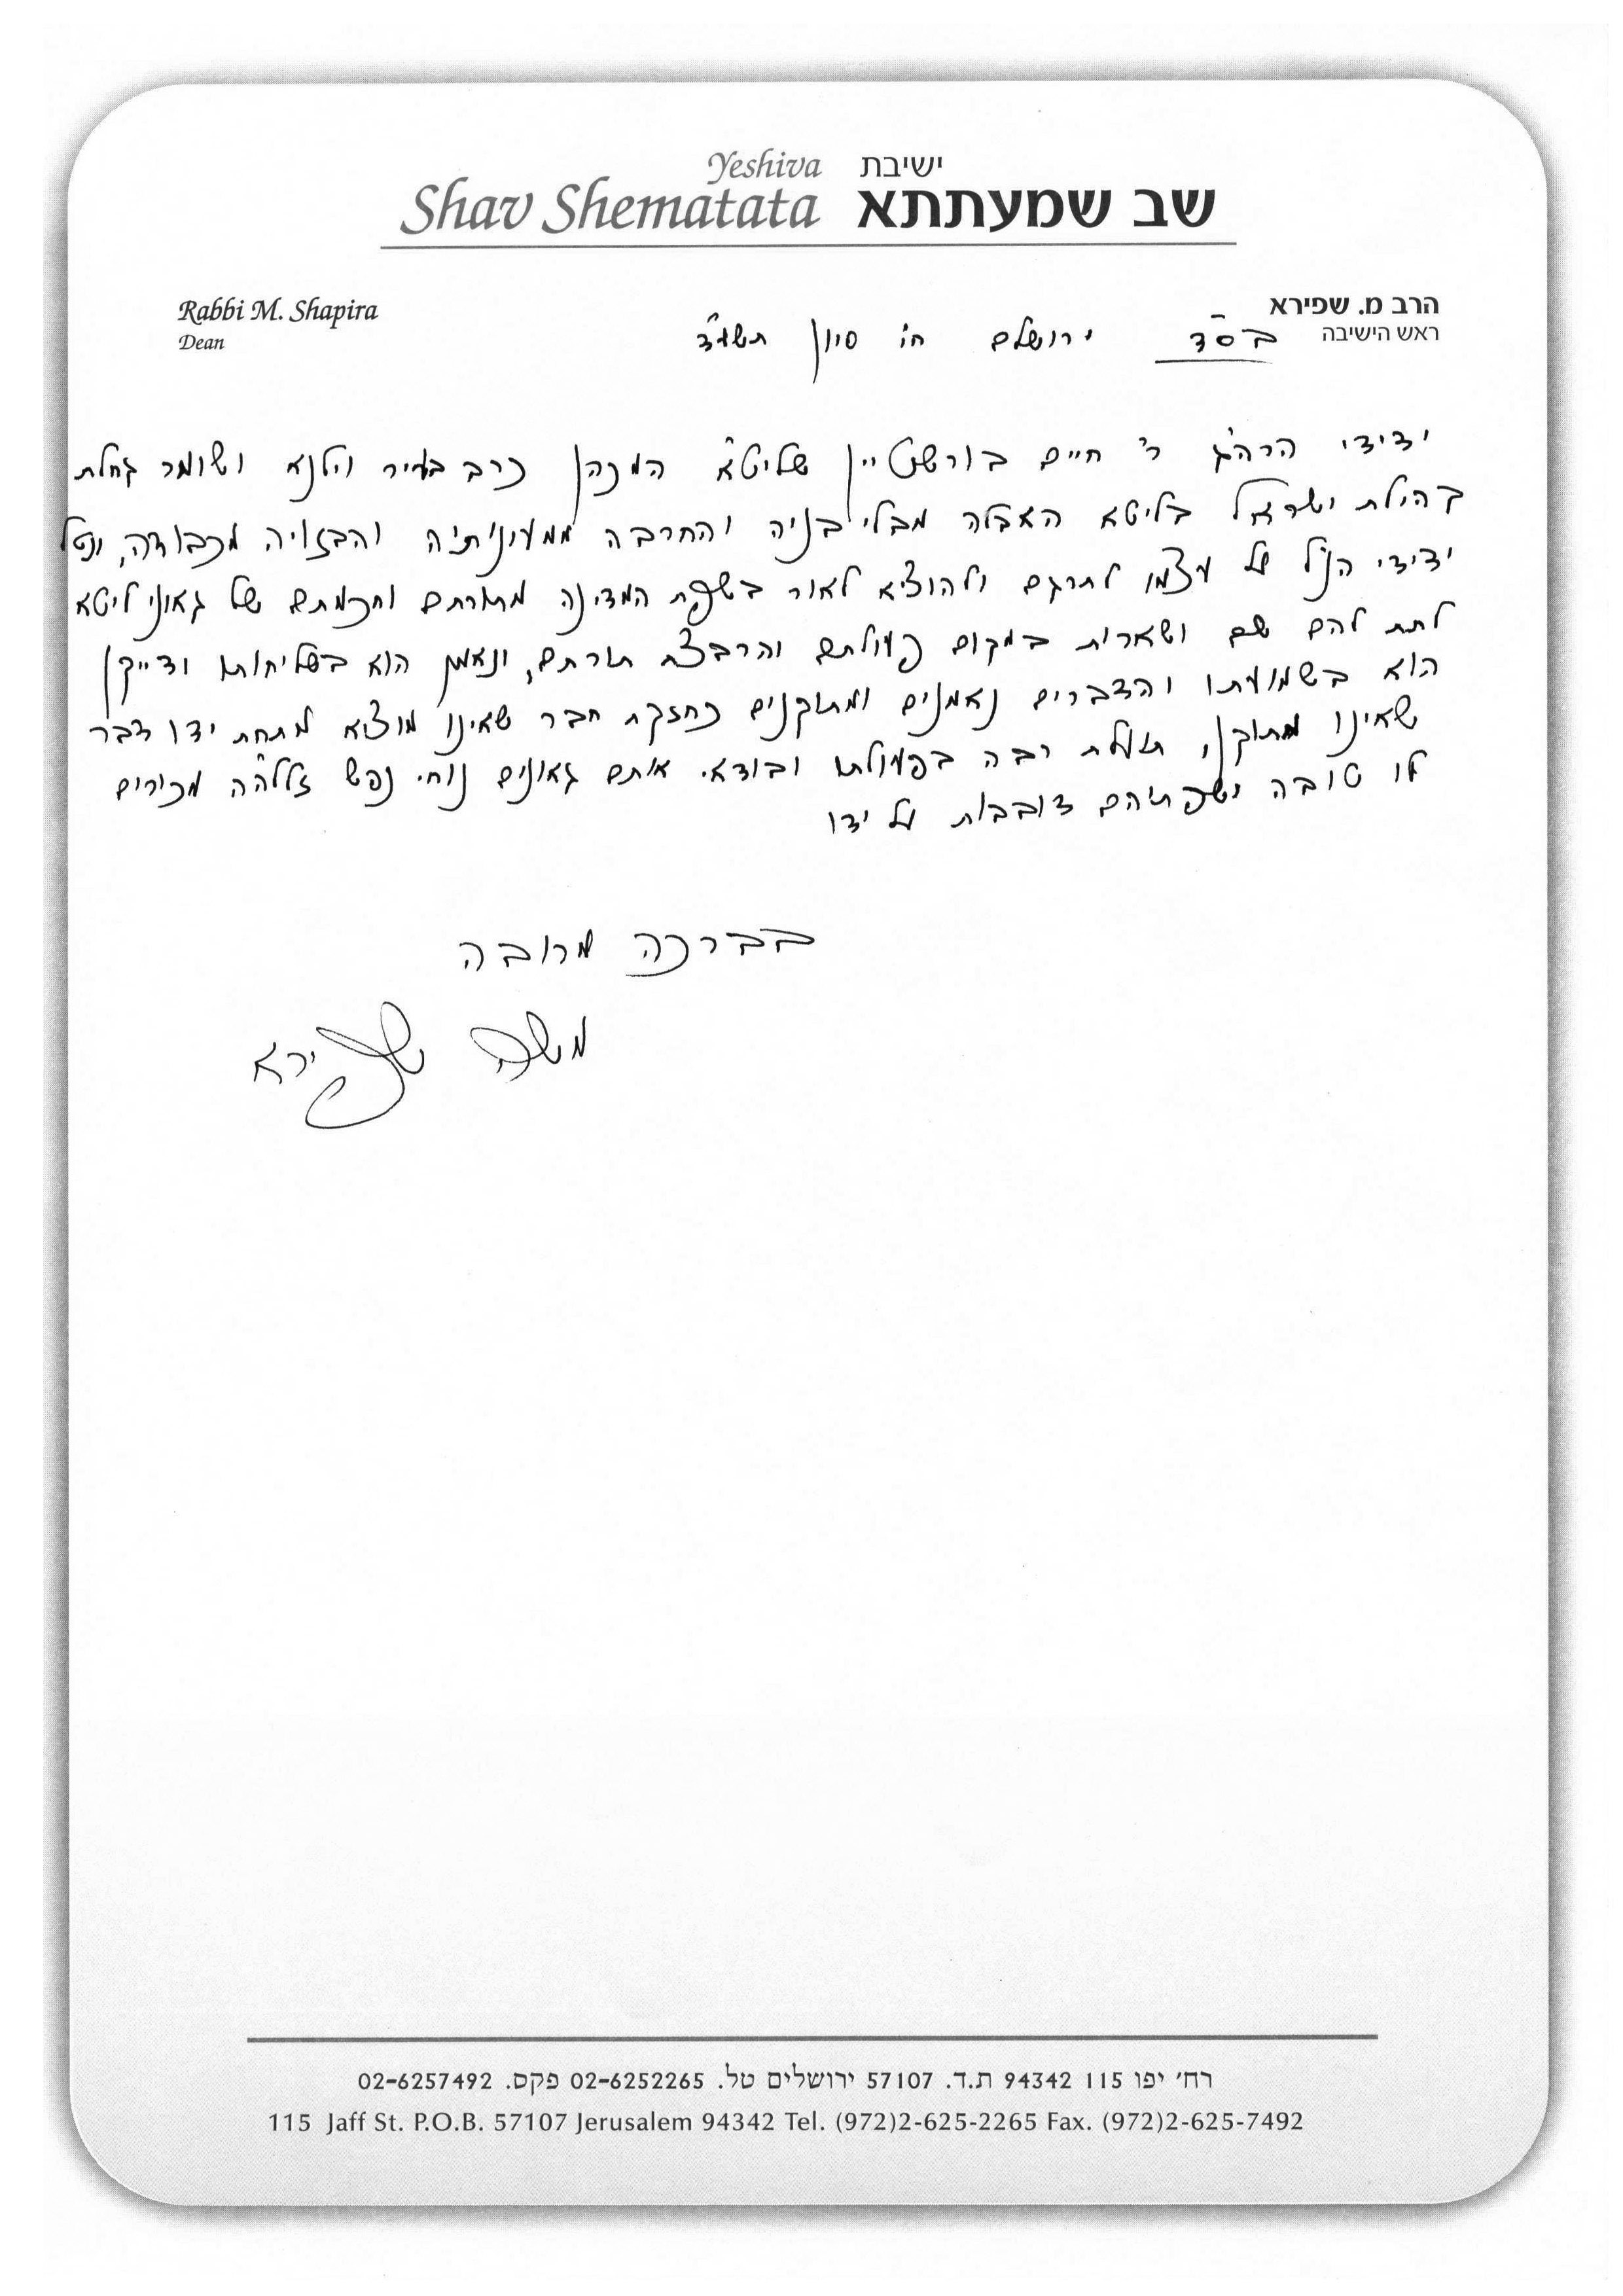 Yeshiva ישיבת
Shav Shematata שב שמעתתא
Rabbi M. Shapira הרב מ. שפירא
Dean ראש הישיבה
בס"ד ירושלם ח' סיון תשע"ד
ידידי הרה"ג ר' חיים בורשטיין שליט"א המכהן כרב בעיר וילנא ושומר גחלת
קהילת ישראל בליטא האבלה מבלי בניה והחרבה ממעינותיה והבזויה מכבודה, ונטל
ידידי הנ"ל על עצמו לתרגם ולהוציא לאור בשפת המדינה מתורתם וחכמתם של גאוני ליטא
לתת להם שם ושארית במקום פעולתם והרבצת תורתם, ונאמן הוא בשליחותו ודייקן
הוא בשמועתו והדברים נאמנים ומתוקנים כחזקת חבר שאינו מוציא מתחת ידו דבר
שאינו מתוקן, תועלת רבה בפעולתו ובודאי אותם גאונים נוחי נפש זללה"ה מכירים
לו טובה ושפתיהם דובבות על ידו
בברכה מרובה
משה שפירא
רח' יפו 115 94342 ת.ד. 57107 ירושלים טל. 02-6252265 פקס. 02-6257492
115 Jaff St. P.O.B. 57107 Jerusalem 94342 Tel. (972)2-625-2265 Fax. (972)2-625-7492